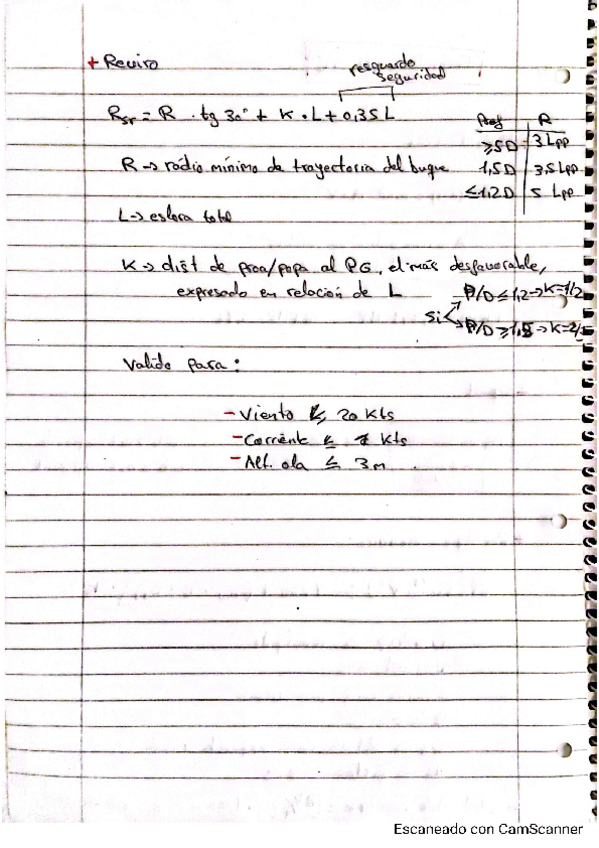 + Reviro
resguardo
seguridad
Rsr = R · tg 30° + K · L + 0,35 L
Prof R
≥5D 3 Lpp
R → rádio mínimo de trayectoria del buque 1,5D 3,5 Lpp
≤1,2D 5 Lpp
L → eslora total
K → dist de proa/popa al PG, el más desfavorable,
expresado en relación de L
Si P/D ≤ 1,2 → K=1/2
P/D ≥ 1,5 → K=2/
Valido para:
- Viento ≤ 20 Kts
- Corriente ≤ Kts
- Alt. ola ≤ 3m
Escaneado con CamScanner